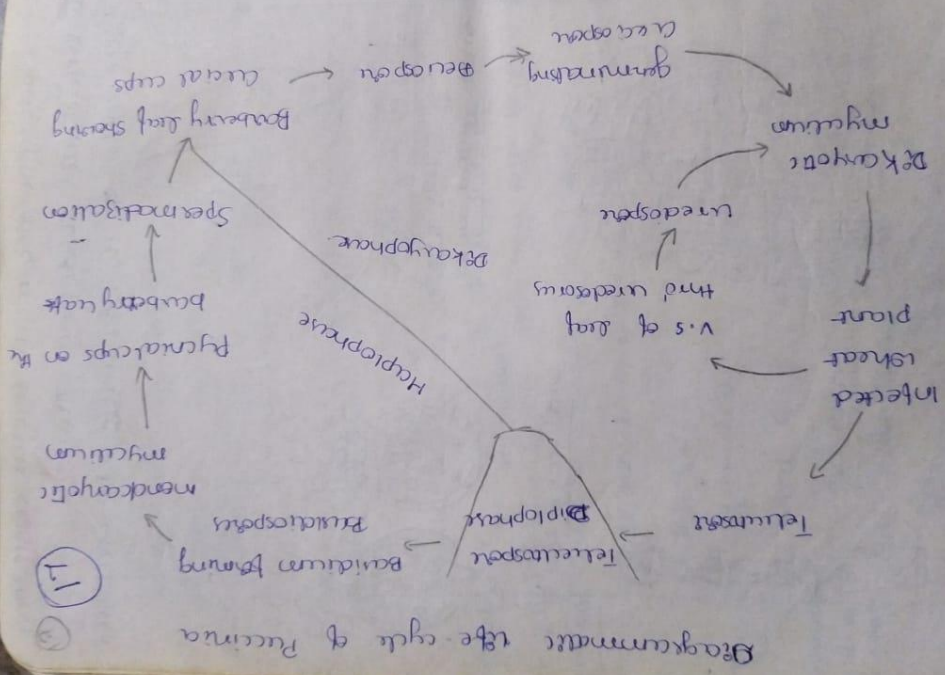 Diagrammatic life cycle of Puccinia
Teleutospore
Diplophase
Basidium forming
Basidiospores
monokaryotic
mycelium
Pycnial cups on the
barberry leaf
Spermatization
Barberry leaf showing
Aecial cups
Aeciospore
germinating
Aeciospore
Dikaryotic
mycelium
Infected
wheat
plant
V.S of leaf
thro' uredosorus
Uredospore
Teleutospore
Haplophase
Dikaryophase